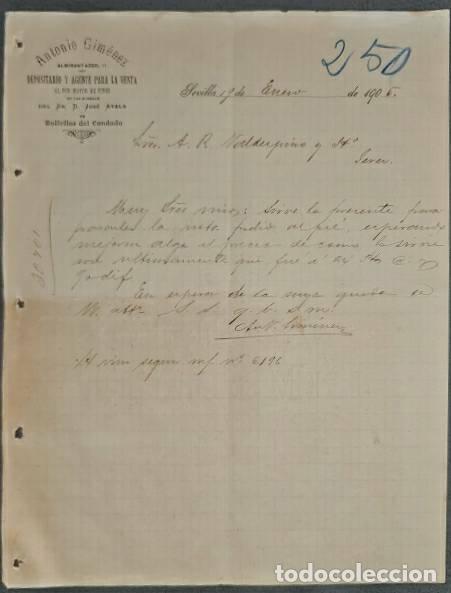 Antonio Giménez
DEPOSITARIO Y AGENTE PARA LA VENTA
AL POR MAYOR DE VINOS
DE LAS BODEGAS
DEL SR. D. JOSÉ AYALA
DE
Bollullos del Condado
250
Sevilla 19 de Enero de 1905.
Sres. A. R. Valdespino y Hº
Jerez
Muy Sres mios: Sirve la presente para
ponerles la nota pedido al pié, esperando
mejoren algo el precio de como la sirvie
ron ultimamente que fué á
En espera de la suya queda de
V. attº S. S. q. b. s. m.
Antº Giménez
vino segun nº 6196
30701
todocoleccion.net